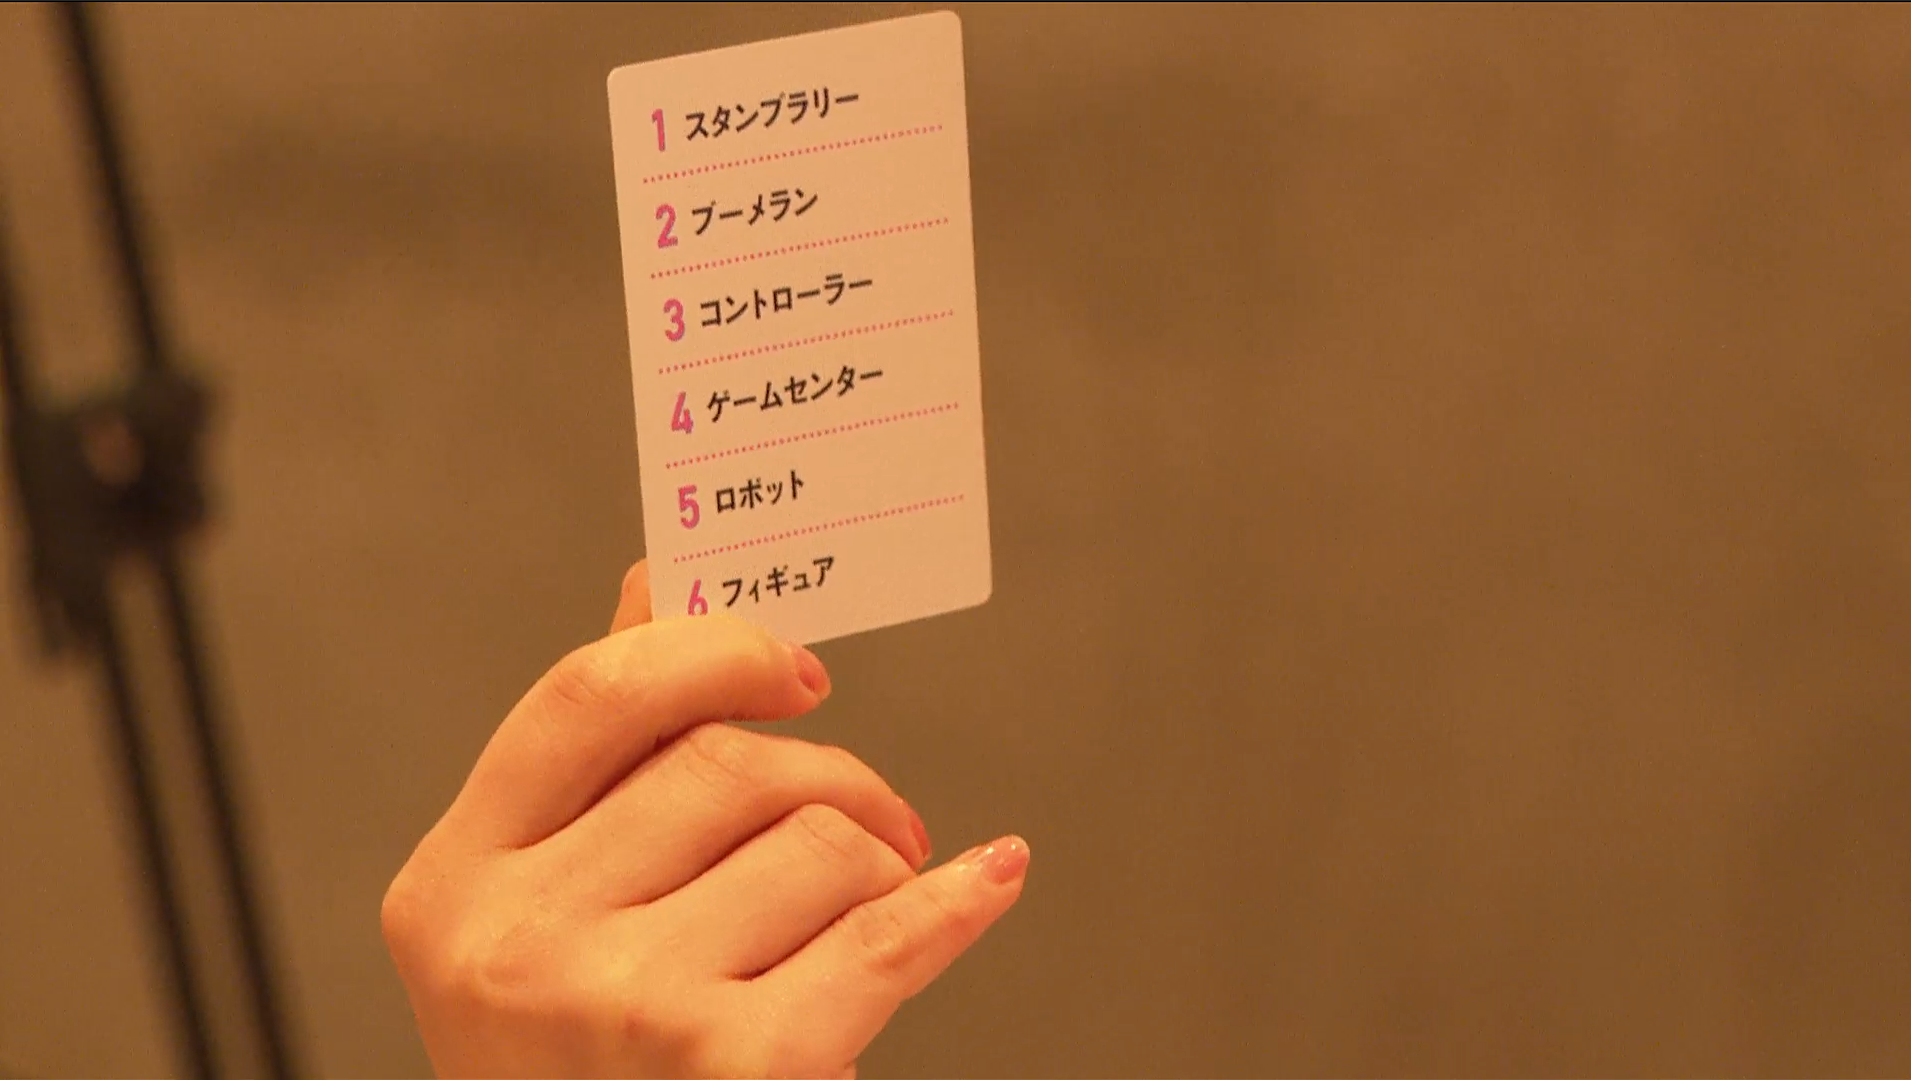 1 スタンプラリー
2 ブーメラン
3 コントローラー
4 ゲームセンター
5 ロボット
6 フィギュア